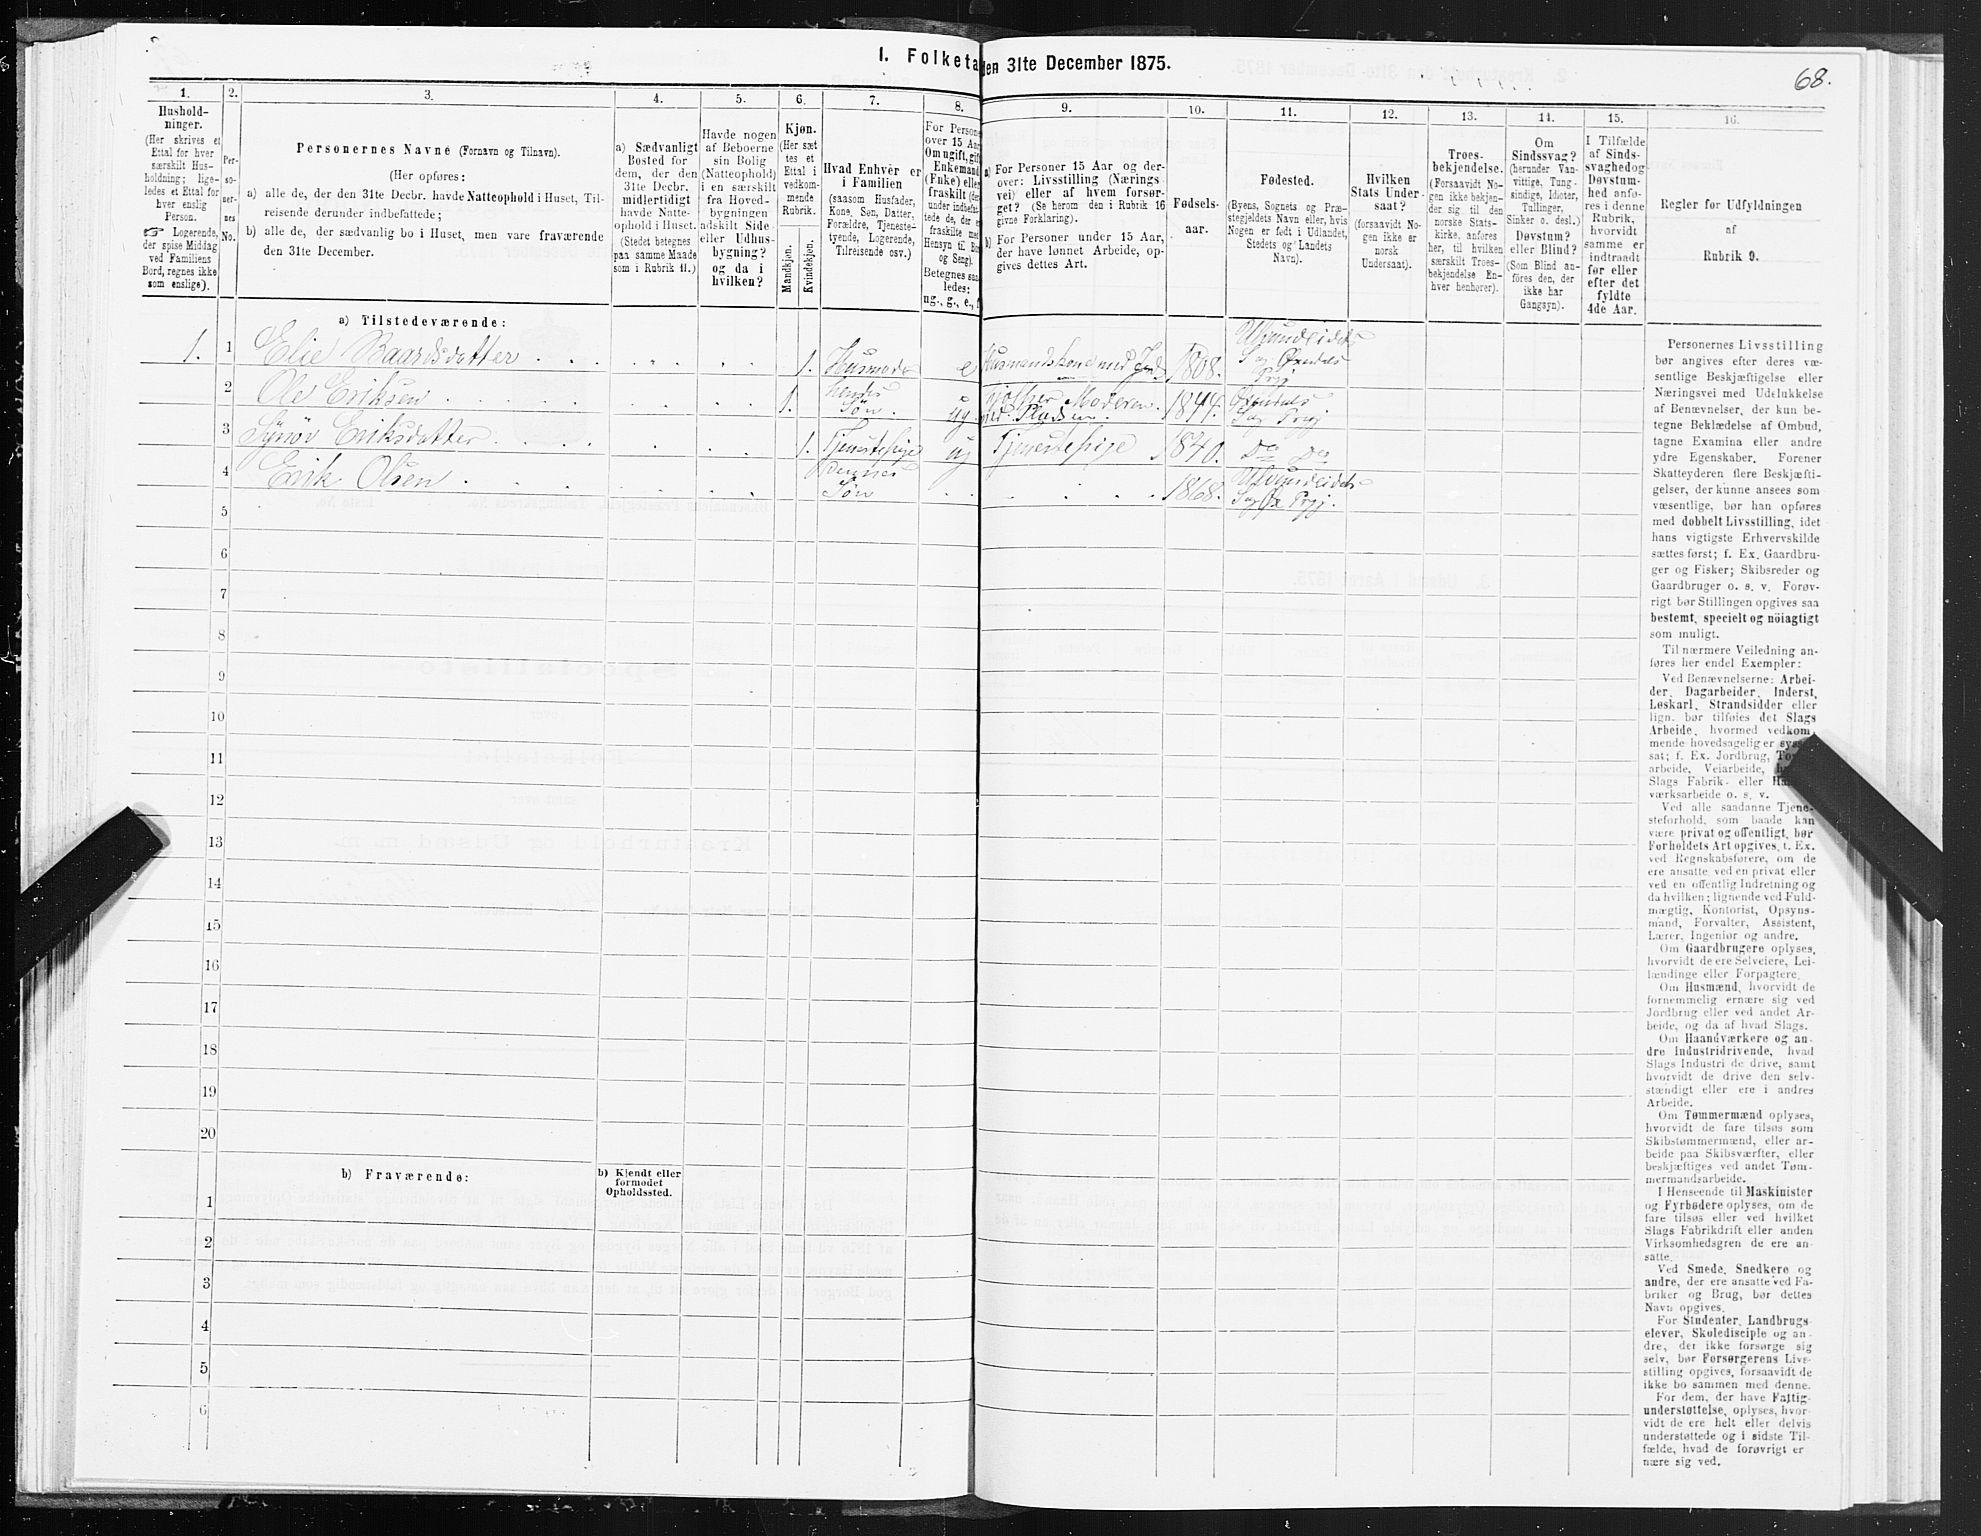 1. Folketæ
den 31te December 1875.
68.
1.
Hushold-
ninger.
(Her skrives et
Ettal for hver
særskilt Hus-
holdning; lige-
ledes et Ettal for
hver enslig
Person.
☞ Logerende,
der spise Middag
ved Familiens
Bord, regnes ikke
som enslige).
2.
Per-
so-
ner-
nes
No.
3.
Personernes Navne (Fornavn og Tilnavn).
(Her opføres:
a) alle de, der den 31te Decbr. havde Natteophold i Huset, Til-
reisende derunder indbefattede;
b) alle de, der sædvanlig bo i Huset, men vare fraværende
den 31te December.
4.
a) Sædvanligt
Bosted for
dem, der den
31te Decbr.
midlertidigt
havde Natte-
ophold i Huset.
(Stedet betegnes
paa samme Maade
som i Rubrik 11.)
5.
Havde nogen
af Beboerne
sin Bolig
(Natteophold)
i en særskilt
fra Hoved-
bygningen
adskilt Side-
eller Udhus-
bygning?
og da i
hvilken?
6.
Kjøn.
(Her sæt
tes et
Ettal i
vedkom-
mende
Rubrik.
Mandkjøn.
Kvindekjøn.
7.
Hvad Enhver er
i Familien
(saasom Husfader,
Kone, Søn, Datter,
Forældre, Tjeneste-
tyende, Logerende,
Tilreisende osv.)
8.
For Persone
over 15 Aar
Om ugift, gift
Enkemand
(Enke) elle
fraskilt (de
under indbefat-
tede de, der e
fraskilte med
Hensyn til Bo
og Seng).
Betegnes saa
ledes:
ug., g., e., f
9.
a) For Personer 15 Aar og der-
over: Livsstilling (Nærings
vei) eller af hvem forsør-
get? (Se herom den i Rubrik 16
givne Forklaring).
b) For Personer under 15 Aar,
der have lønnet Arbeide, op-
gives dettes Art.
10.
Fødsels-
aar.
11.
Fødested.
(Byens, Sognets og Præ-
stegjeldets Navn eller, hvis
Nogen er født i Udlandet,
Stedets og Landets
Navn).
12.
Hvilken
Stats Under-
saat?
(forsaavidt No-
gen ikke er
norsk
Undersaat).
13.
Troes-
bekjendelse.
(Forsaavidt No-
gen ikke bekjen-
der sig til den
norske Stats-
kirke, anføres
her, til hvilken
særskilt Troes-
bekjendelse En-
hver henhører).
14.
Om
Sindssvag?
(herunder Van-
vittige, Tung-
sindige, Idioter,
Tullinger,
Sinker o. desl.)
Døvstum?
eller Blind?
(Som Blind an-
føres den, der
ikke har
Gangsyn).
15.
I Tilfælde
af Sinds-
svaghed og
Døvstum-
hed anfø-
res i denne
Rubrik,
hvorvidt
samme er
indtraadt
før eller
efter det
fyldte
4de Aar.
16.
Regler for Udfyldningen
af
Rubrik 9.
a) Tilstedeværende:
1. 1 Elie Baardsdatter 1. Husmoder e Husmandskone med Jord 1808. Ulvundeidets Sog Øxendals Prgj
2 Ole Eriksen 1. hendes Søn. ug. hjælper Moderen med Pladsen. 1844. Øxendals Sog Prgj
3 Synøv Eriksdatter 1. Tjenestepige ug Tjenestepige 1840. Do Do
4 Erik Olsen Dennes Søn 1868. Ulvundeidets Sog Øx Prgj.
5
6
7
8
9
10
11
12
13
14
15
16
17
18
19
20
b) Fraværende:
b) Kjendt eller
formodet
Opholdssted.
1
2
3
4
5
6
Personernes Livsstilling
bør angives efter deres væ-
sentlige Beskjæftigelse eller
Næringsvei med Udelukkelse
af Benævnelser, der kun be-
tegne Beklædelse af Ombud,
tagne Examina eller andre
ydre Egenskaber. Forener
Skatteyderen flere Beskjæfti-
gelser, der kunne ansees som
væsentlige, bør han opføres
med dobbelt Livsstilling, idet
hans vigtigste Erhvervskilde
sættes først; f. Ex. Gaardbru-
ger og Fisker; Skibsreder og
Gaardbruger o. s. v. Forøv-
rigt bør Stillingen opgives saa
bestemt, specielt og nöiagtigt
som muligt.
Til nærmere Veiledning an-
føres her endel Exempler:
Ved Benævnelserne: Arbei-
der, Dagarbeider, Inderst,
Løskarl, Strandsidder eller
lign. bør tilføies det Slags
Arbeide, hvormed vedkom-
mende hovedsagelig er
sat; f. Ex. Jordbrug,
arbeide, Veiarbeide,
Slags Fabrik- eller
værksarbeide o. s. v.
Ved alle saadanne Tjene-
steforhold, som baade kan
være privat og offentligt, bør
Forholdets Art opgives, f. Ex.
ved Regnskabsførere, om de
ere ansatte ved en privat eller
ved en offentlig Indretning og
da hvilken; lignende ved Fuld-
mægtig, Kontorist, Opsyns-
mand, Forvalter, Assistent,
Lærer, Ingeniør og andre.
Om Gaardbrugere oplyses,
hvorvidt de ere Selveiere, Lei-
lændinge eller Forpagtere.
Om Husmænd, hvorvidt de
fornemmelig ernære sig ved
Jordbrug eller ved andet Ar-
beide, og da af hvad Slags.
Om Haandværkere og an-
dre Industridrivende, hvad
Slags Industri de drive, samt
hvorvidt de drive den selv-
stændigt eller ere i andres
Arbeide.
Om Tømmermænd oplyses,
hvorvidt de fare tilsøs som
Skibstømmermænd, eller ar-
beide paa Skibsværfter, eller
beskjæftiges ved andet Tøm-
mermandsarbeide.
I Henseende til Maskinister
og Fyrbødere oplyses, om de
fare tilsøs eller ved hvilket
Slags Fabrikdrift eller anden
Virksomhedsgren de ere an-
satte.
Ved Smede, Snedkere og
andre, der ere ansatte ved Fa-
briker og Brug, bør dettes
Navn opgives.
For Studenter, Landbrugs-
elever, Skoledisciple og an-
dre, der ikke forsørge sig
selv, bør Forsørgerens Livs-
stilling opgives, forsaavidt de
ikke bo sammen med denne.
For dem, der have Fattig-
understøttelse, oplyses, hvor-
vidt de ere helt eller delvis
understøttede og i sidste Til-
fælde, hvad de forøvrigt er
nære sig ved.